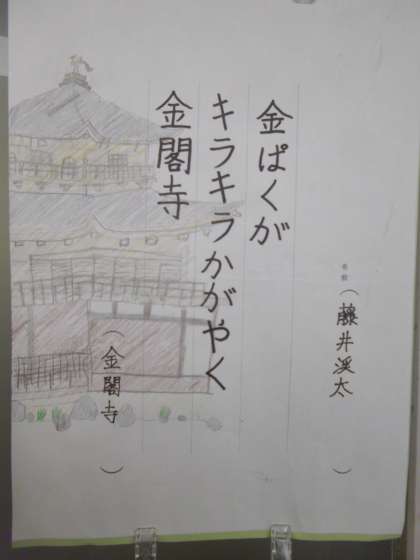 金ぱくが
キラキラかがやく
金閣寺
(藤井渓太)
(金閣寺)